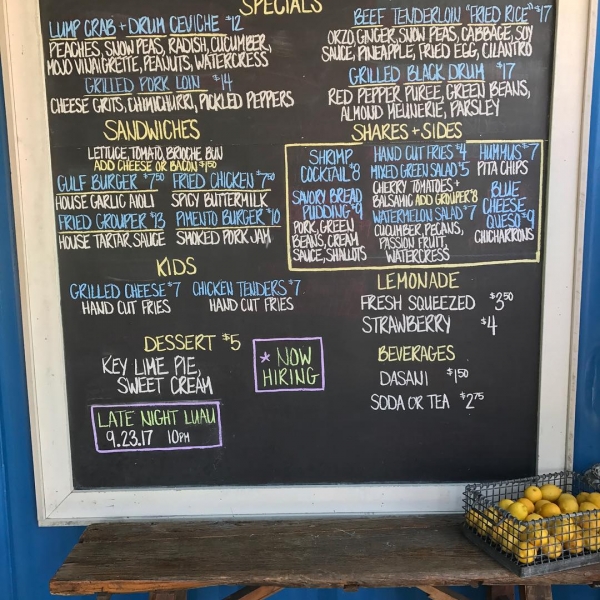 SPECIALS
LUMP CRAB + DRUM CEVICHE $12
PEACHES, SNOW PEAS, RADISH, CUCUMBER,
MOJO VINAIGRETTE, PEANUTS, WATERCRESS
GRILLED PORK LOIN $14
CHEESE GRITS, CHIMICHURRI, PICKLED PEPPERS
BEEF TENDERLOIN "FRIED RICE" $17
ORZO, GINGER, SNOW PEAS, CABBAGE, SOY
SAUCE, PINEAPPLE, FRIED EGG, CILANTRO
GRILLED BLACK DRUM $17
RED PEPPER PUREE, GREEN BEANS,
ALMOND MEUNERIE, PARSLEY
SANDWICHES
LETTUCE, TOMATO, BRIOCHE BUN
ADD CHEESE OR BACON $1.50
GULF BURGER $7.50
HOUSE GARLIC AIOLI
FRIED CHICKEN $7.50
SPICY BUTTERMILK
FRIED GROUPER $13
HOUSE TARTAR SAUCE
PIMENTO BURGER $10
SMOKED PORK JAM
SHARES + SIDES
SHRIMP
COCKTAIL $8
SAVORY BREAD
PUDDING $9
PORK, GREEN
BEANS, CREAM
SAUCE, SHALLOTS
HAND CUT FRIES $4
MIXED GREEN SALAD $5
CHERRY TOMATOES +
BALSAMIC ADD GROUPER $8
WATERMELON SALAD $7
CUCUMBER, PECANS,
PASSION FRUIT,
WATERCRESS
HUMMUS $7
PITA CHIPS
BLUE
CHEESE
QUESO $9
CHICHARRONS
KIDS
GRILLED CHEESE $7
HAND CUT FRIES
CHICKEN TENDERS $7
HAND CUT FRIES
LEMONADE
FRESH SQUEEZED $3.50
STRAWBERRY $4
DESSERT $5
KEY LIME PIE,
SWEET CREAM
* NOW
HIRING
BEVERAGES
DASANI $1.50
SODA OR TEA $2.75
LATE NIGHT LUAU
9.23.17 10PM